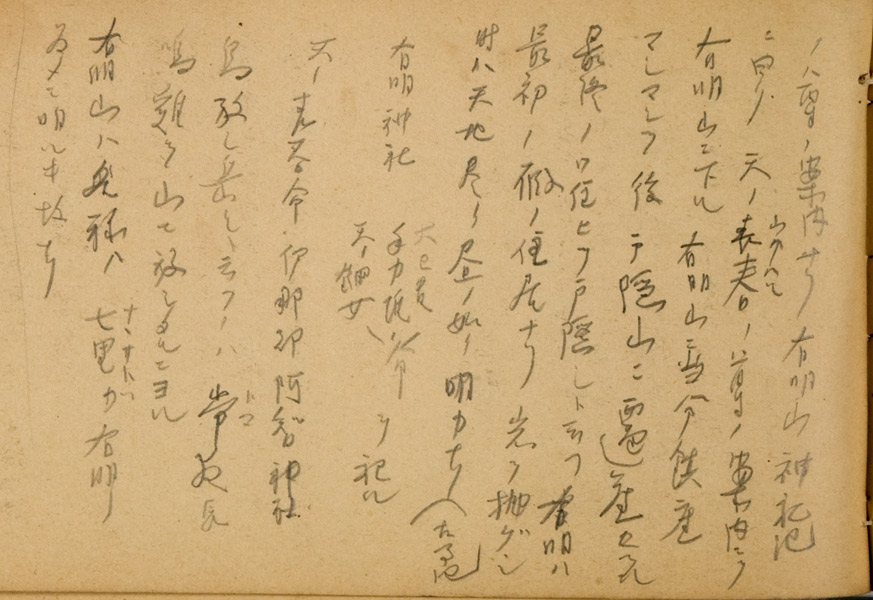 ノ八尊ノ案内ナリ 有明山神社記
ニ曰ク 天ノ表春ノ尊ノ案内ニテ
有明山ニ下ル 有明山ニ当分鎮座
マシマシテ後戸隠山ニ遷座セラル
最終ノ住ヒヲ戸隠シト云フ 有明ハ
最初ノ假ノ住居ナリ 岩ヲ抛ゲシ
時ハ天地尽ク昼ノ如ク明カナリ
有明神社 大己貴 手力雄命 ヲ祀ル
天ノ鈿女
天ノ表春命 伊那郡阿智神社
鳥放シ岳ト云フハ 常 長
鳴鶏ヲ山ニ放シタルニヨル
有明山ハ 七里カ有明ノ
為メニ明ルキ故ナリ